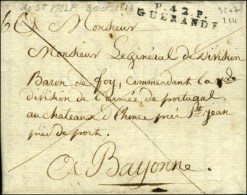 P. 42. P.
GUERANDE
A Monsieur
Monsieur Le général de Division
Baron de foy, Commendant la
division de l'armée de portugal
au chateaux d'hince pres St jean
pied de port.
A Bayonne